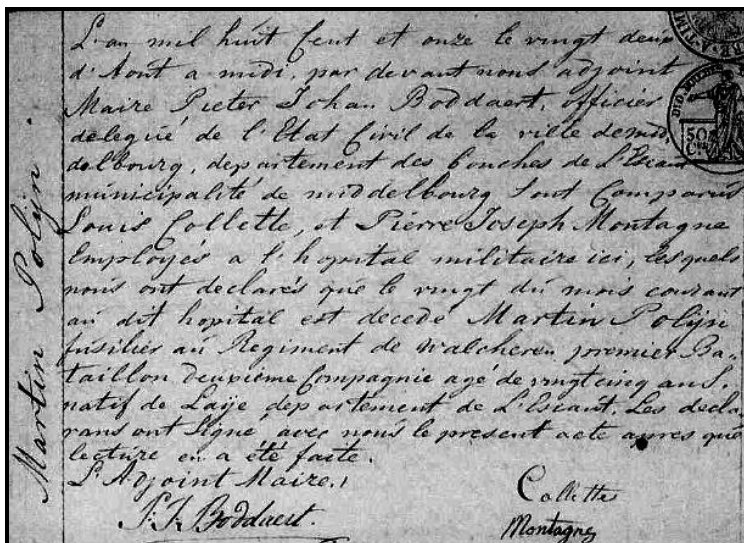 Martin Polijn.
L'an mil huit Cent et onze le vingt deux
d'Aout a midi, par devant nous adjoint
Maire Pieter Johan Boddaert, officier
delegué de l'Etat Civil de la ville de mid,
delbourg, departement des bouches de L'Escaut
municipalité de middelbourg Sont Comparus
Louis Collette, et Pierre Joseph Montagne
Employés a l'hopital militaire ici, lesquels
nous ont declarés que le vingt du mois courant
au dit hopital est decedé Martin Polijn
fusilier au Regiment de walcheren premier Ba-
taillon deuxieme Compagnie agé de vingtcinq ans.
natif de Laije departement de L'Escaut. Les decla,
rans ont signé avec nous le present acte apres que
lecture en a été faite.
L'Adjoint Maire.,
P. J. Boddaert.
Collette
Montagne
50